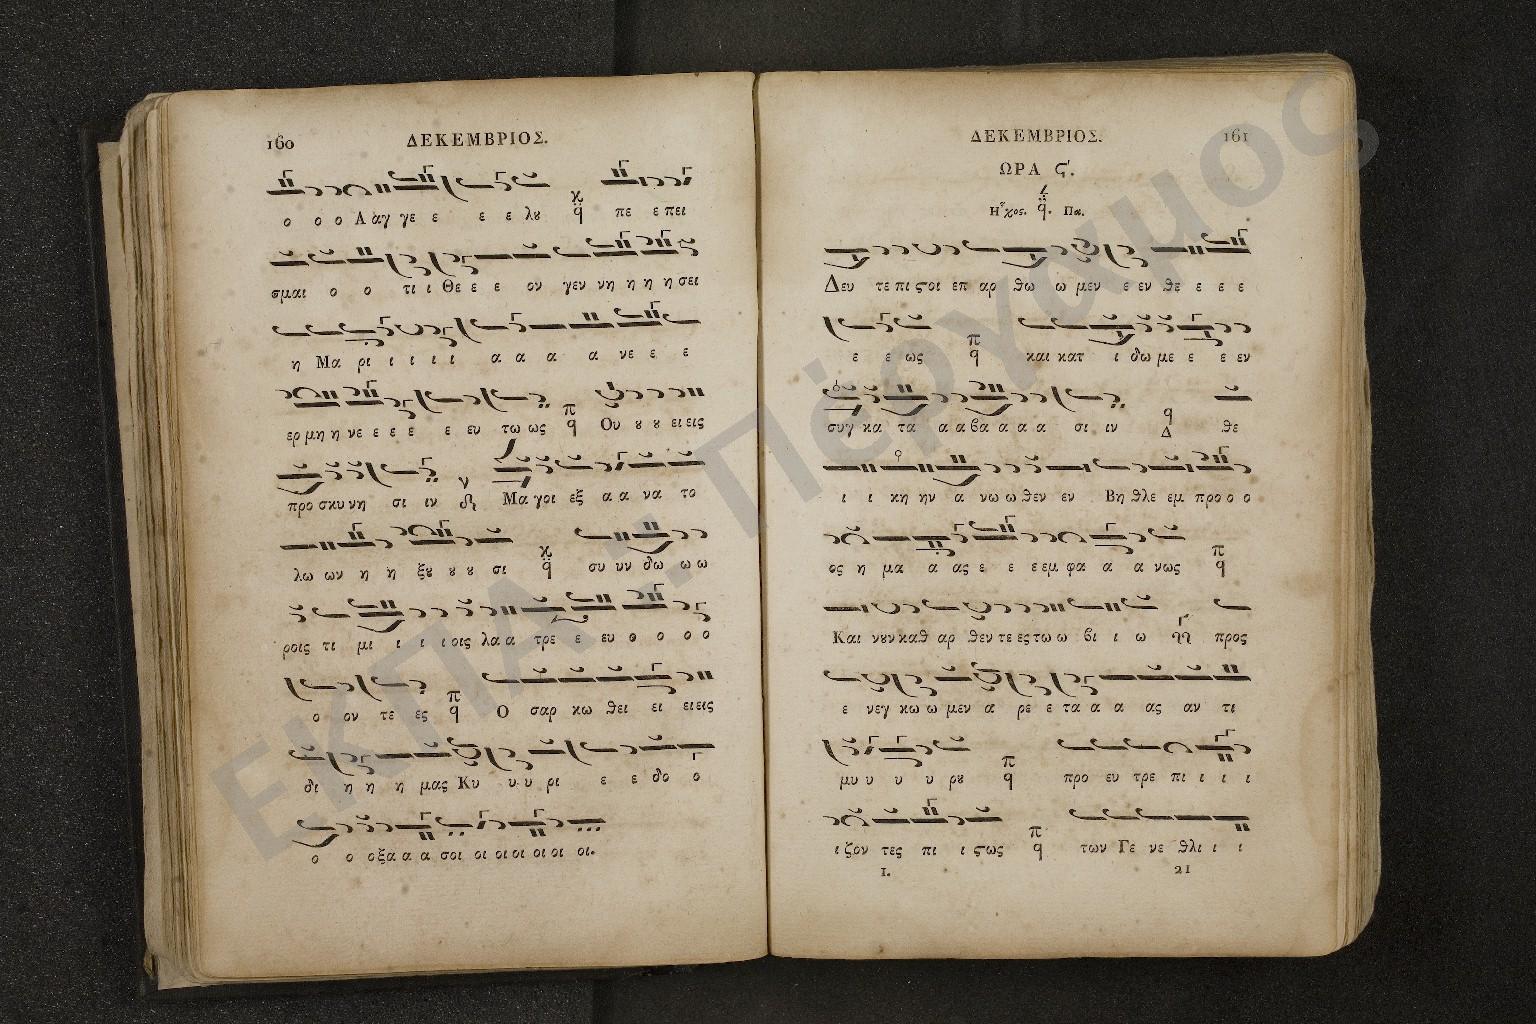 160 ΔΕΚΕΜΒΡΙΟΣ.
ο ο ο Α αγ γε ε ε ε λȣ πε ε πει
σμαι ο ο τι ι Θε ε ε ον γεν νη η η η σει
η Μα ρι ι ι ι ι α α α α νε ε ε
ερ μη η νε ε ε ε ε ευ τω ως π Ου ȣ ȣ ει εις
προ σκυ νη σι ιν Μα γοι εξ α α να το
λω ων η η ξȣ ȣ ȣ σι συ υν δω ω ω
ροις τι μι ι ι ι οις λα α τρε ε ευ ο ο ο ο
ο ον τε ες π Ο σαρ κω θει ει ει εις
δι η η η μας Κυ υ υ ρι ε ε δο ο
ο ο οξα α α σοι οι οι οι οι οι οι.
ΔΕΚΕΜΒΡΙΟΣ. 161
ΩΡΑ ϛ΄.
Ἦχος. Πα.
Δευ τε πι ϛοι επ αρ θω ω μεν ε εν θε ε ε ε
ε ε ως π και κατ ι δω με ε ε εν
συγ κα τα α α βα α α α σι ιν Δ θε
ι ι κη ην α νω ω θεν εν Βη θλε εμ προ ο ο
ος η μα α ας ε ε ε εμ φα α α νως π
Και νȣν καθ αρ θεν τε ες τω ω βι ι ω προς
ε νεγ κω ω μεν α ρε ε τα α α α ας αν τι
μυ υ υ υ ρȣ π προ ευ τρε πι ι ι ι
ι ζον τες πι ι ϛως π των Γε νε θλι ι ι
I. 21
ΕΚΠΑ: Πέργαμος